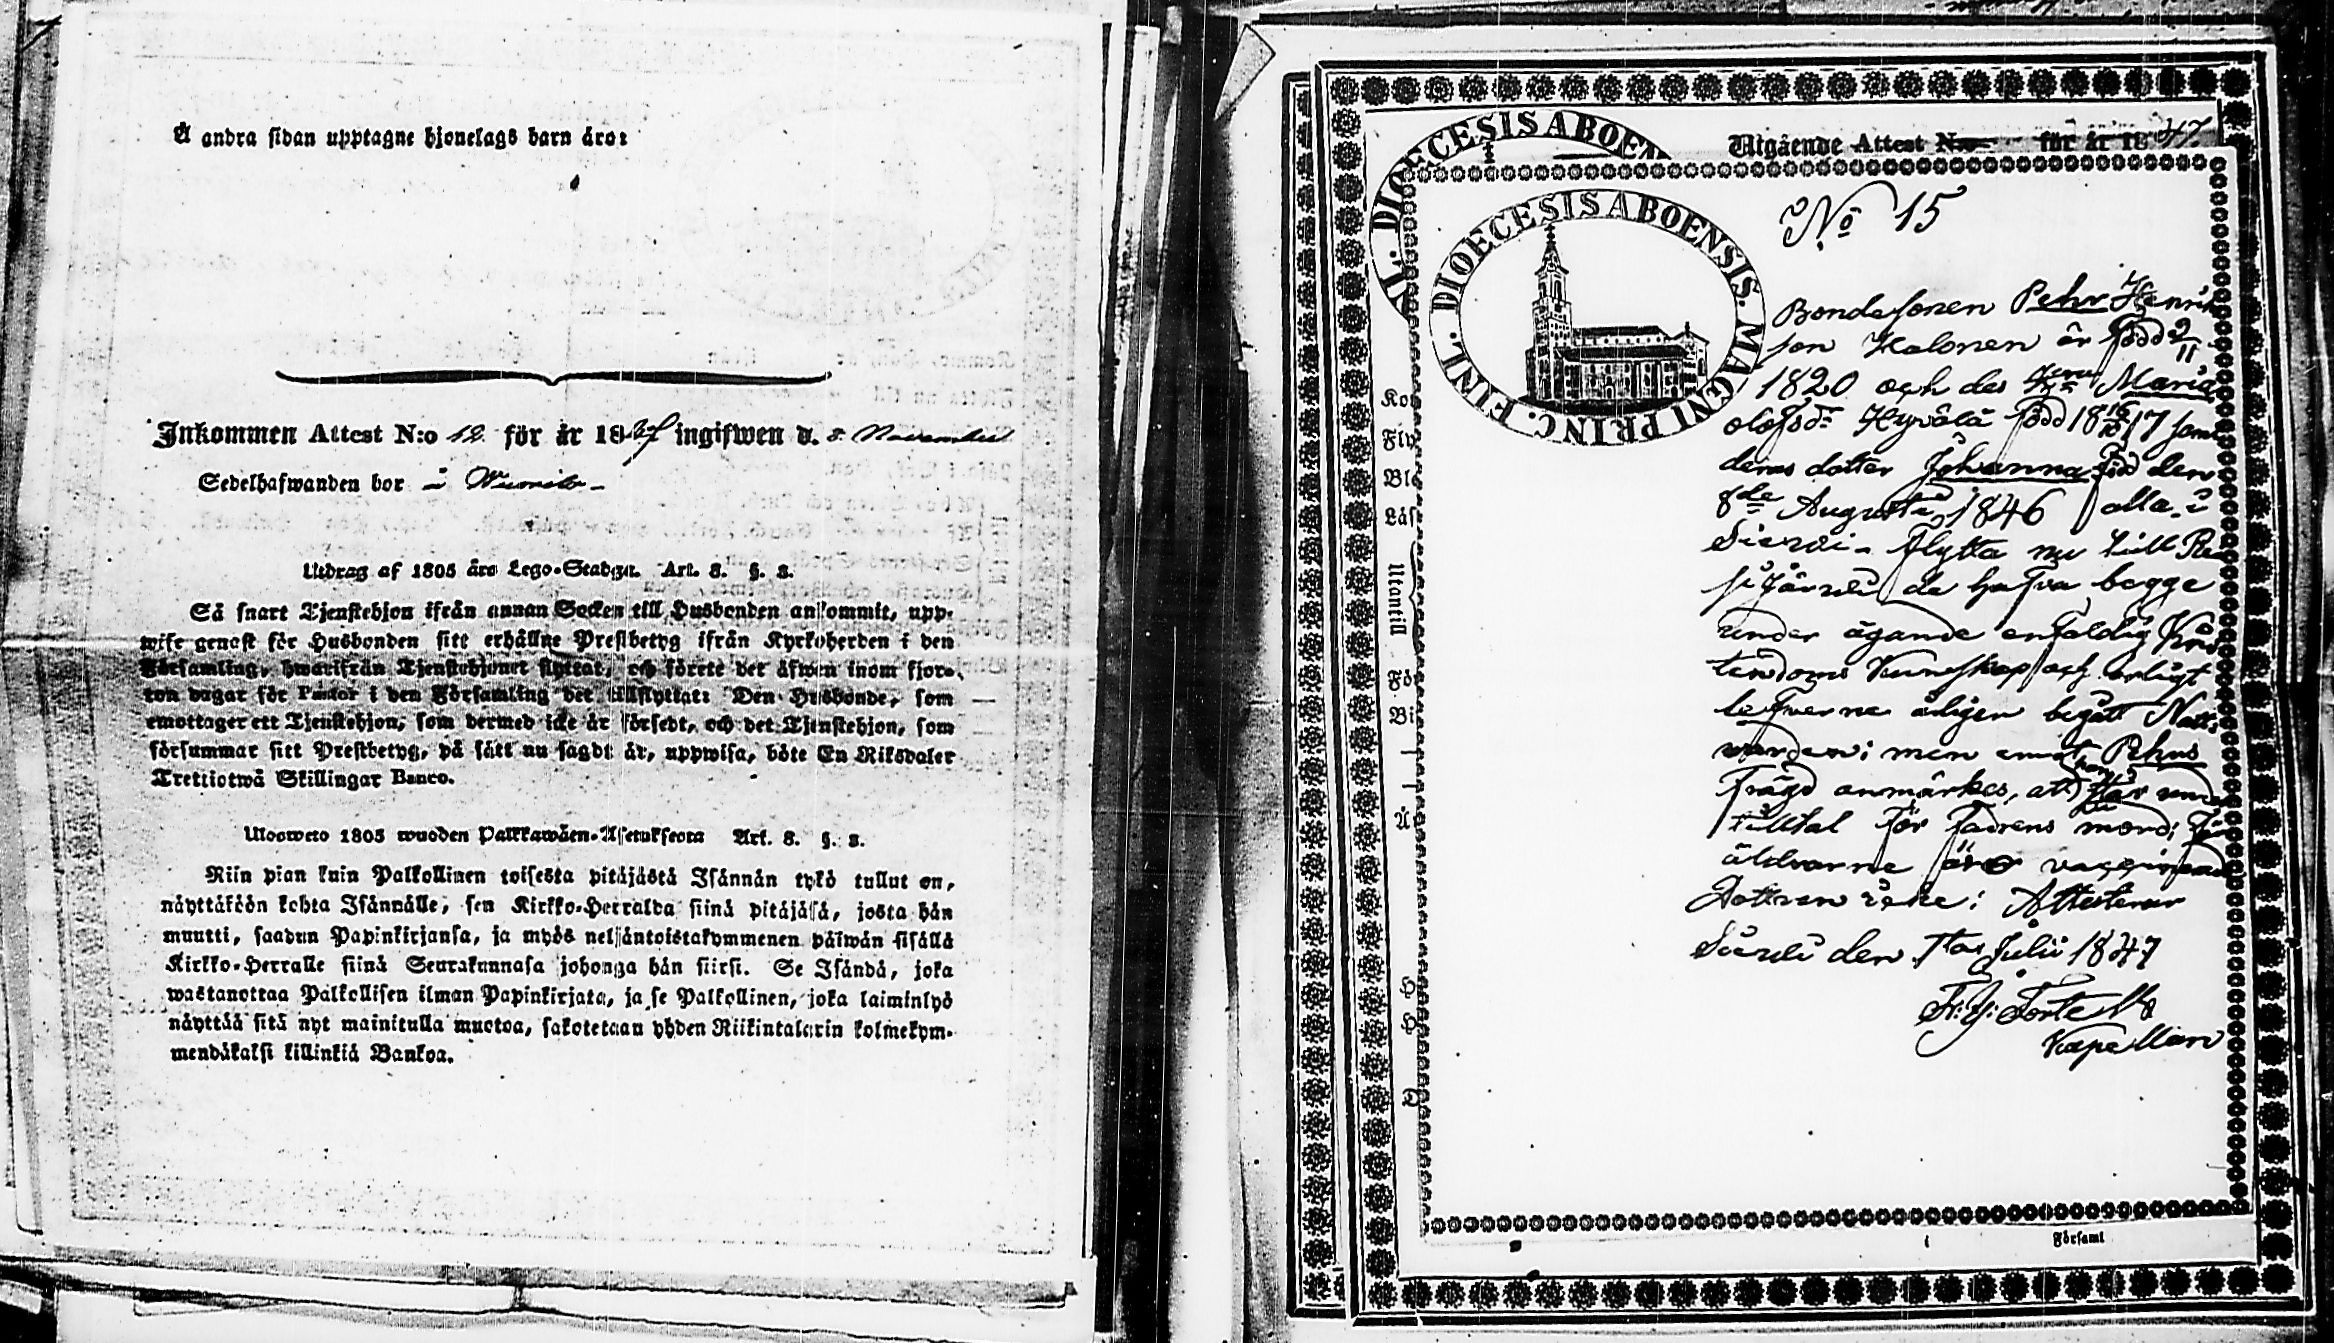 Å andra sidan upptagne hjonelags barn äro:
Inkommen Attest N:o 12 för år 1847 ingifwen d. 8 November
Sedelhafwanden bor i
Utdrag af 1805 års Lego-Stadgan. Art. 8. §. 3.
Så snart Tjenstehjon ifrån annan Socken till Husbonden ankommit, upp-
wise genast för Husbonden sitt erhållne Prestbetyg ifrån Kyrkoherden i den
Församling, hwarifrån Tjenstehjonet flyttat, och förete det äfwen inom fjor-
ton dagar för Pastor i den Församling det tillflyttat: Den Husbonde, som
emottager ett Tjenstehjon, som dermed icke är försedt, och det Tjenstehjon, som
försummar sitt Prestbetyg, på sätt nu sagdt är, uppwisa, böte En Riksdaler
Trettiotwå Skillingar Banco.
Ulosweto 1805 wuoden Palkkawäen-Asetuksesta Art. 8. §. 3.
Niin pian kuin Palkollinen toisesta pitäjästä Isännän tykö tullut on,
näyttäköön kohta Isännälle, sen Kirkko-Herralda siinä pitäjäsä, josta hän
muutti, saadun Papinkirjansa, ja myös neljäntoistakymmenen päiwän sisällä
Kirkko-Herralle siinä Seurakunnasa johonga hän siirsi. Se Isändä, joka
wastanottaa Palkollisen ilman Papinkirjata, ja se Palkollinen, joka laiminlyö
näyttää sitä nyt mainitulla muotoa, sakotetaan yhden Riikintalarin kolmekym-
mendäkaksi killinkiä Bankoa.
Utgående Attest N:o för år 1847
DIOECESIS ABOEN
DIOECESIS ABOENSIS. MAGNI PRINC. FINL.
No 15
Bondesonen Pehr Henrik
son Halonen är född 2/11
1820 och des Hustru Maria
olofsdr Hyvälä född 18 17 samt
deras dotter Johanna född den
8de Augusti 1846 alla i
Sierdi flytta nu till Re
sijärvi de hafva begge
under ägande enfaldig Kris
tendoms Kunskap och ärligt
lefverne årligen begått Natt
varden: men emot Pehrs
frägd anmärkes, att han står under
tilltal för fadrens mord: För
äldrarne äro vaccinerade
Dottren icke: Attesterar
Sierdi den 1sta Julii 1847
Kapellan
Utantill
i Församl